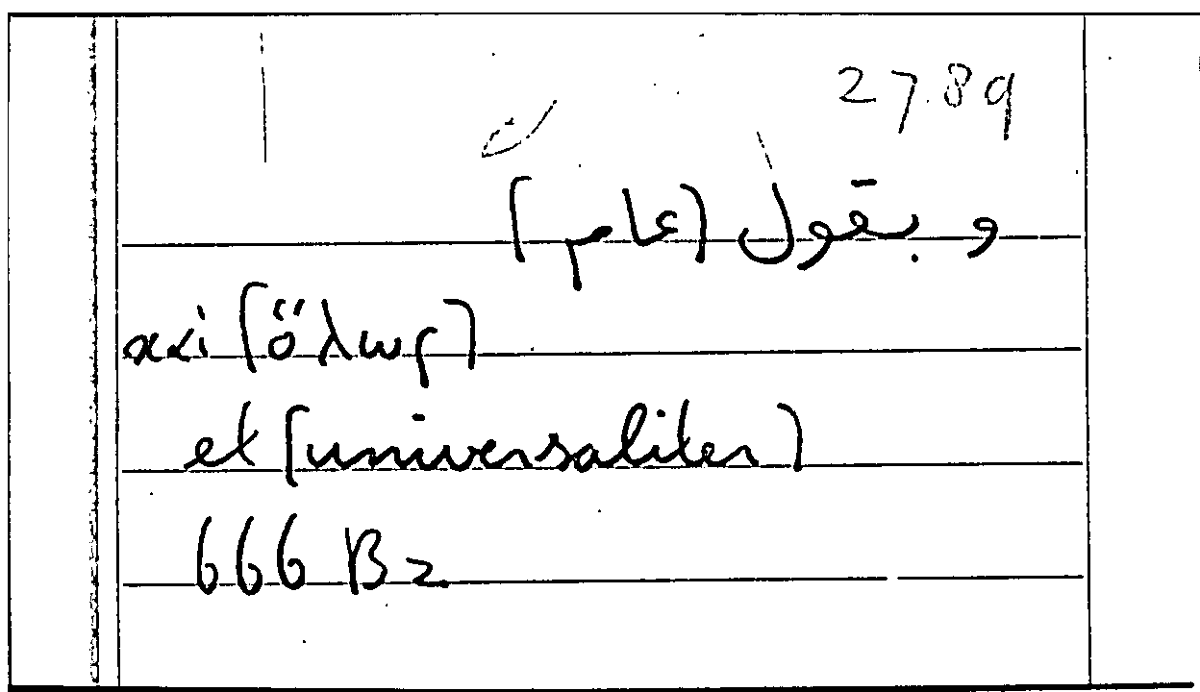 27.89
و بقول [عام]
καὶ [ὅλως]
et [universaliter]
666 B2